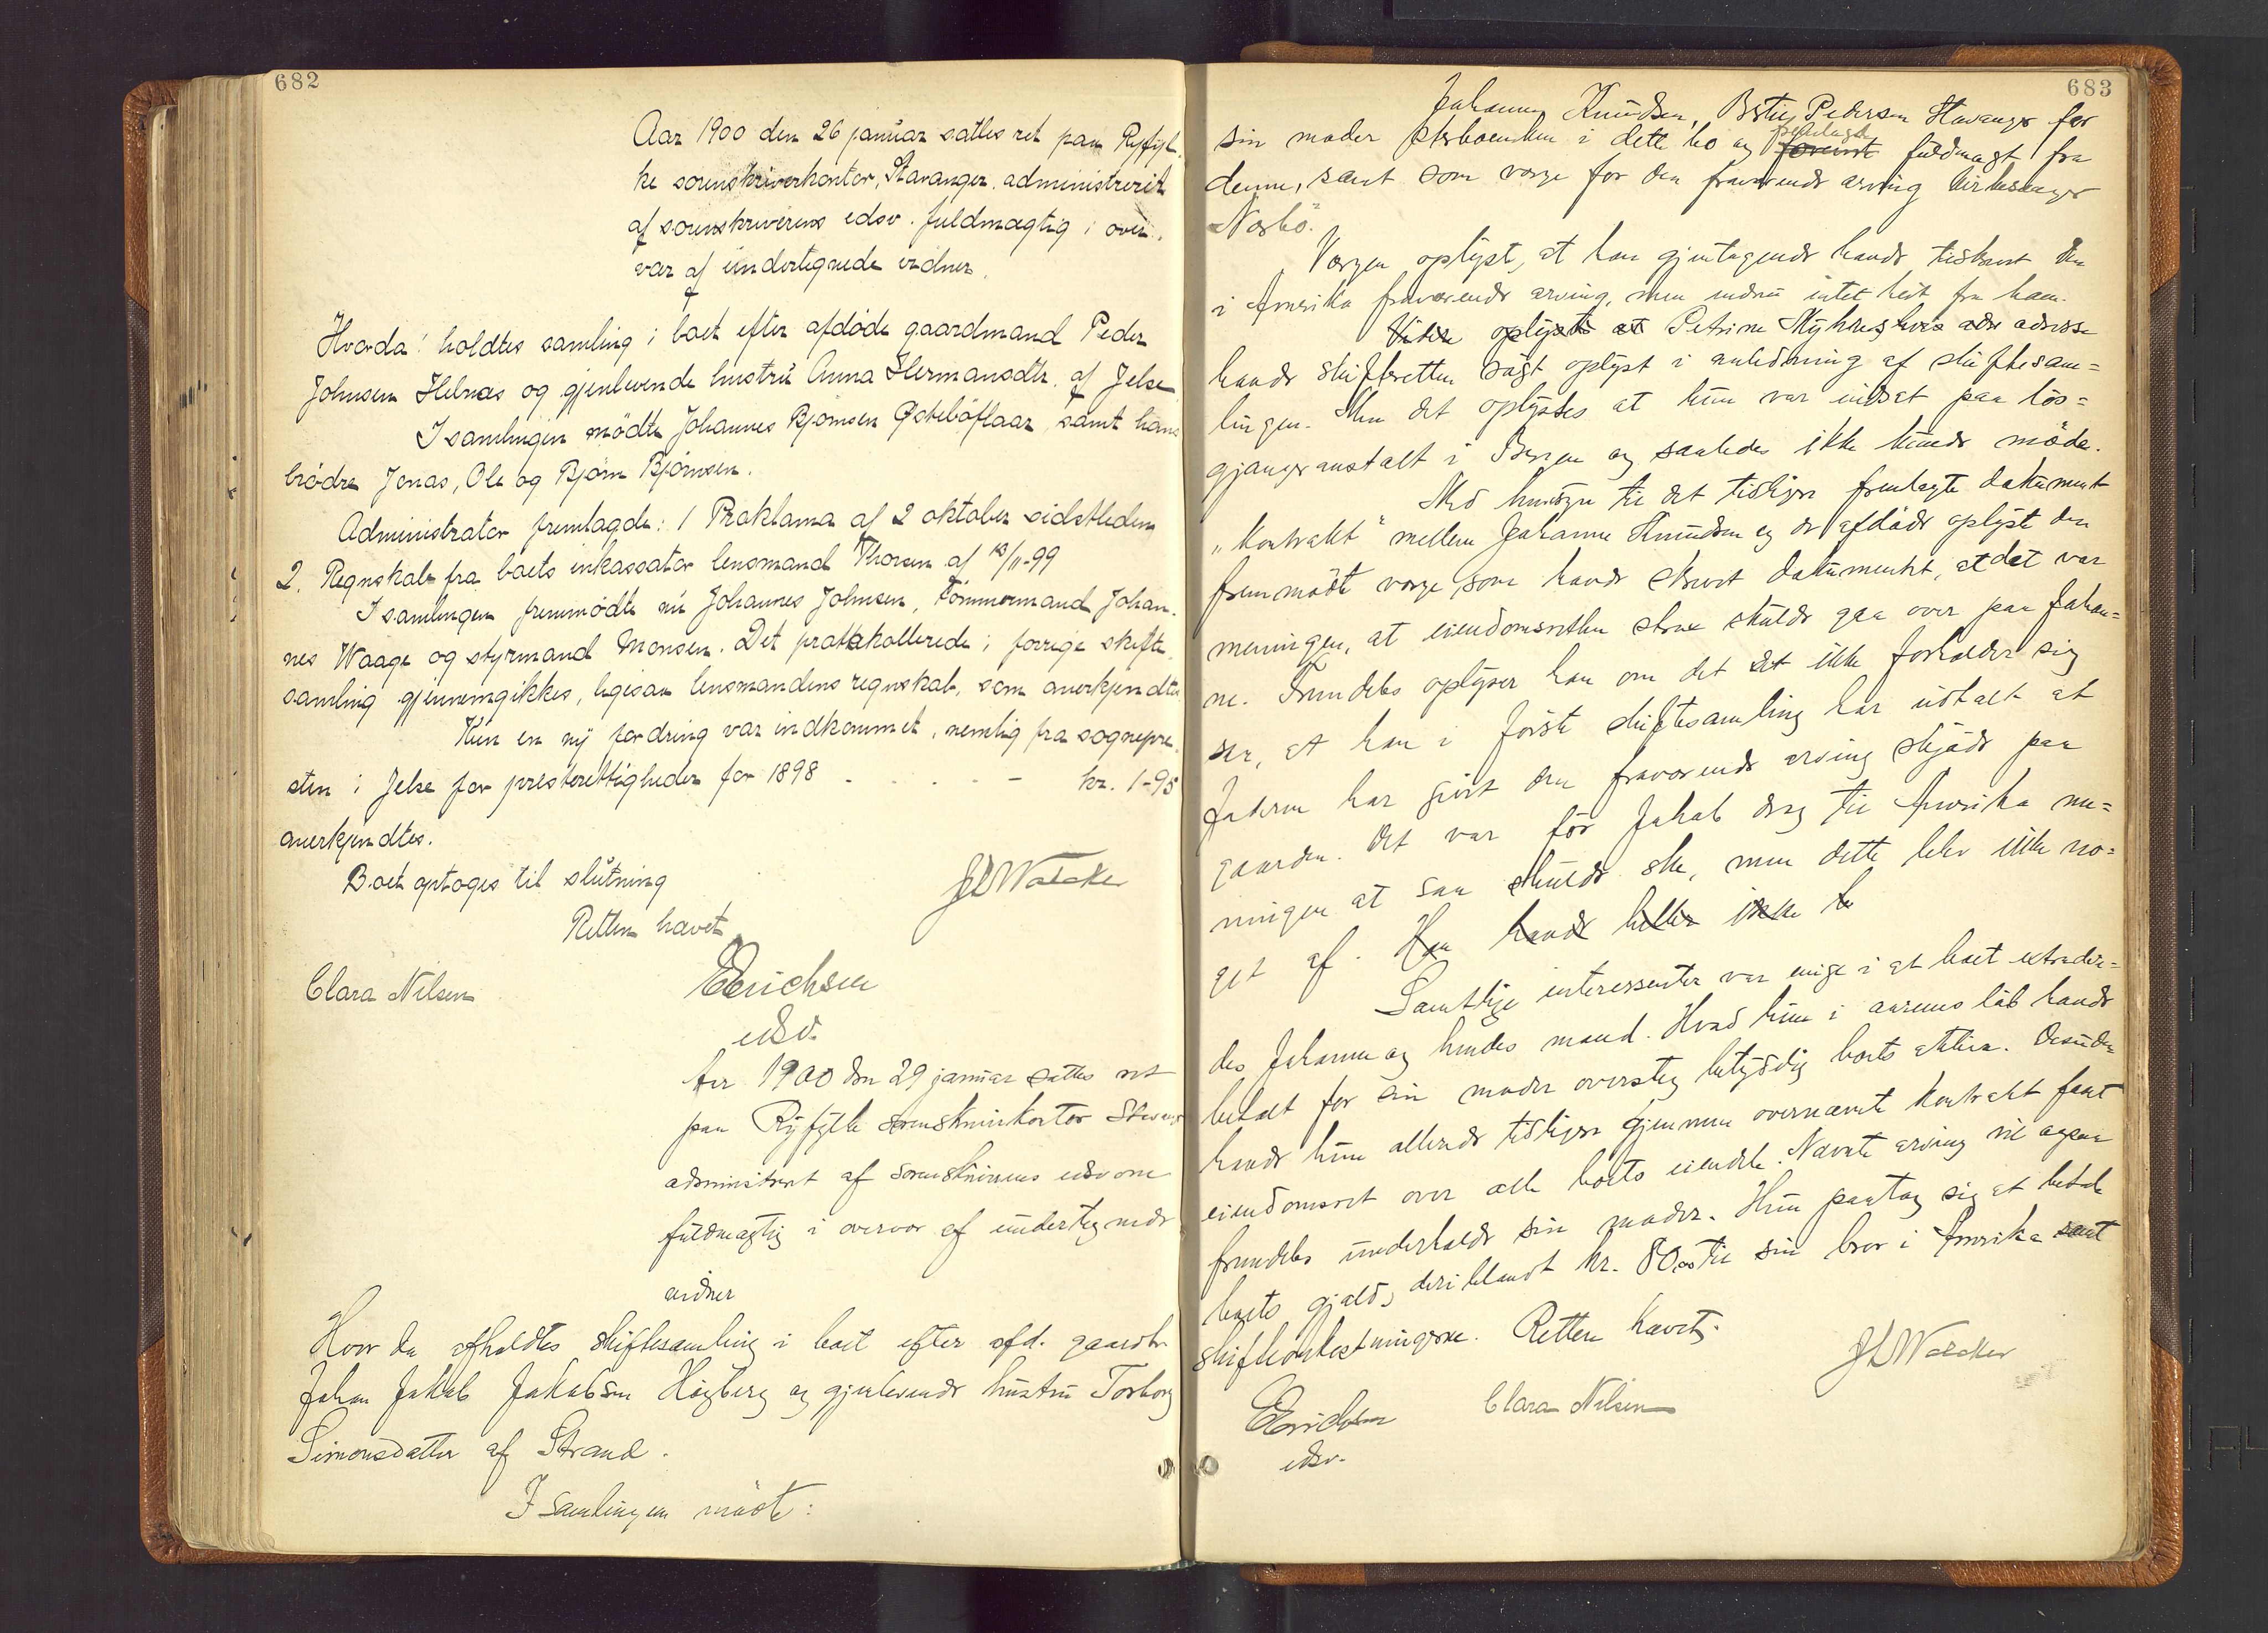 682
Aar 1900 den 26 januar sattes ret paa Ryfyl-
ke sorenskriverkontor, Stavanger, administreret
af sorenskriverens edsv. fuldmægtig i over-
vær af undertegnede vidner.
Hvorda: holdtes samling i boet efter afdøde gaardmand Peder
Johnsen Helnæs og gjenlevende hustru Anna Hermansdtr. af Jelse
I samlingen mødte Johannes Bjørnsen Østebøflaar, samt hans
brødre Jonas, Ole og Bjørn Bjørnsen.
Administrator fremlagde: 1 Proklama af 2 oktober sidstleden
2. Regnskab fra boets inkassator lensmand Thorsen af 13/11-99
I samlingen fremmødte nu Johannes Johnsen, tømmermand Johan-
nes Waage og styrmand Monsen. Det protokollerede i forrige skifte-
samling gjennemgikkes, ligesaa lensmandens regnskab, som anerkjendtes
Kun en ny fordring var indkommet, nemlig fra sognepre-
sten i Jelse for presterettigheder for 1898 - - - - - kr. 1-95
anerkjendtes.
Boet optoges til slutning
Retten hævet
JLWalcker
Clara Nilsen
EErichsen
edsv.
Aar 1900 den 29 januar sattes ret
paa Ryfylke sorenskriverkontor Stavanger
administreret af sorenskriverens edsvorne
fuldmægtig i overvær af undertegnede
vidner
Hvor da afholdtes skiftesamling i boet efter afd. gaardbr
Johan Jakob Jakobsen Høgberg og gjenlevende hustru Torborg
Simonsdatter af Strand.
I samlingen mødte:
683
Johanne Knudsen, Pedersen Stavanger for
sin moder sterboenken i dette bo og foreviste fuldmagt fra
denne, samt som verge for den fraværende arving kirkesanger
Nærbø.
Vergen oplyste, at han gjentagende havde tilskrevet den
i Amerika fraværende arving, men endnu intet hørt fra ham.
Videre oplyste at Petrine Myhres hvis adr adresse
havde skifteretten søgt oplyst i anledning af skiftesam=
lingen. Men det oplystes at hun var indsat paa løs=
gjængeranstalt i Bergen og saaledes ikke kunde møde.
Med hensyn til det tidligere fremlagte dokument
"Kontrakt" mellem Johanne Knudsen og de afdøde oplyste den
fremmødte verge, som havde skrevet dokumentet, at det var
meningen, at eiendomsretten strax skulde gaa over paa Johan=
ne. Fremdeles oplyser han om det det ikke forholder sig
saa, at han i første skiftesamling har udtalt at
Faderen har givet den fraværende arving skjøde paa
gaarden. Det var før Jakob drog til Amerika me=
ningen at saa skulde ske, men dette blev ikke no=
get af. Han havde heller ikke be
Samtlige interessenter var enige i at boet extrader=
des Johanne og hendes mand. Hvad hun i aarenes løb havde
betalt for sin moder oversteg betydelig boets aktiva. Desuden
havde hun allerede tidligere gjennem overnævnte kontrakt faaet
eiendomsret over alle boets eiendele. Nævnte arving vil ogsaa
fremdeles underholde sin moder. Hun paatog sig at betale
boets gjæld, deriblandt kr. 80,00 til sin bror i Amerika samt
skifteomkostningerne. Retten hævet.
JLWalcker
EErichsen
edsv.
Clara Nilsen